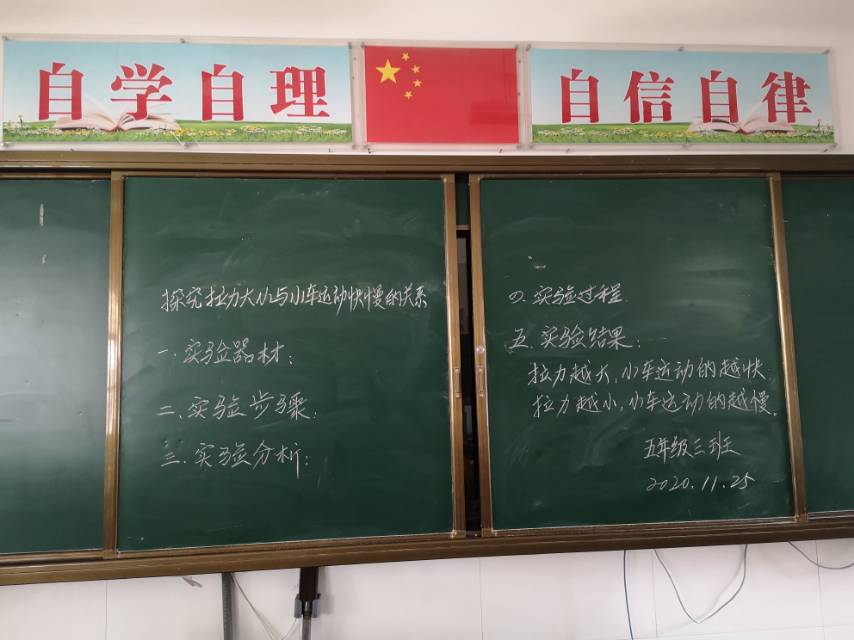 自学自理
自信自律
探究拉力大小与小车运动快慢的关系
一.实验器材:
二.实验步骤:
三.实验分析:
四.实验过程
五.实验结果:
拉力越大,小车运动的越快
拉力越小,小车运动的越慢.
五年级三班
2020.11.25